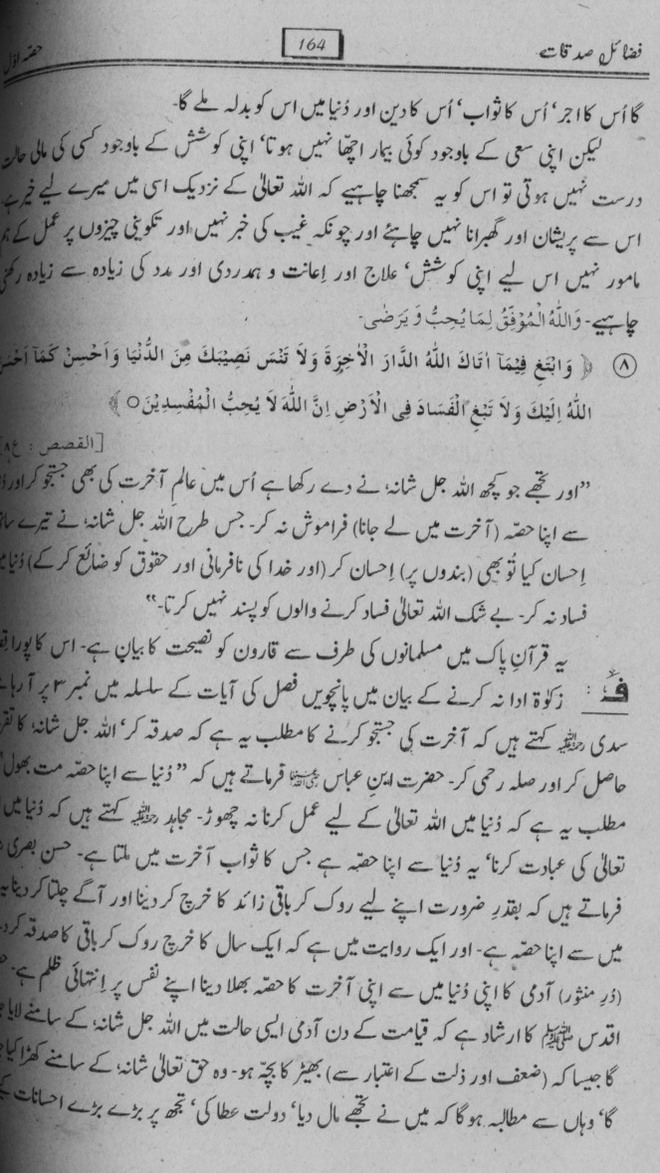 فضائلِ صدقات 164 حصّہ اوّل
گا اُس کا اجر، اُس کا ثواب، اُس کا دین اور دُنیا میں اس کو بدلہ ملے گا۔
لیکن اپنی سعی کے باوجود کوئی بیمار اچھا نہیں ہوتا، اپنی کوشش کے باوجود کسی کی مالی حالت
درست نہیں ہوتی تو اس کو یہ سمجھنا چاہیے کہ اللہ تعالیٰ کے نزدیک اسی میں میرے لیے خیر ہے
اس سے پریشان اور گھبرانا نہیں چاہئے اور چونکہ غیب کی خبر نہیں اور تکوینی چیزوں پر عمل کے ہم
مامور نہیں اس لیے اپنی کوشش، علاج اور اِعانت و ہمدردی اور مدد کی زیادہ سے زیادہ رکھنی
چاہیے۔ وَاللهُ الْمُوَفِّقُ لِمَا يُحِبُّ وَ يَرْضٰى۔
⑧ ﴿ وَابْتَغِ فِيْمَآ اٰتَاكَ اللهُ الدَّارَ الْاٰخِرَةَ وَلَا تَنْسَ نَصِيْبَكَ مِنَ الدُّنْيَا وَاَحْسِنْ كَمَآ
اللهُ اِلَيْكَ وَلَا تَبْغِ الْفَسَادَ فِى الْاَرْضِ اِنَّ اللهَ لَا يُحِبُّ الْمُفْسِدِيْنَ○ ﴾
[القصص : ع ٨]
”اور تجھے جو کچھ اللہ جل شانہٗ نے دے رکھا ہے اُس میں عالمِ آخرت کی بھی جستجو کر اور
سے اپنا حصّہ (آخرت میں لے جانا) فراموش نہ کر۔ جس طرح اللہ جل شانہٗ نے تیرے
اِحسان کیا تُو بھی (بندوں پر) اِحسان کر (اور خدا کی نافرمانی اور حقوق کو ضائع کر کے) دُنیا میں
فساد نہ کر۔ بے شک اللہ تعالیٰ فساد کرنے والوں کو پسند نہیں کرتا۔“
یہ قرآنِ پاک میں مسلمانوں کی طرف سے قارون کو نصیحت کا بیان ہے۔ اس کا پورا
ف : زکوٰۃ ادا نہ کرنے کے بیان میں پانچویں فصل کی آیات کے سلسلہ میں نمبر ۳ پر آ رہا
سدی رحمہ اللہ کہتے ہیں کہ آخرت کی جستجو کرنے کا مطلب یہ ہے کہ صدقہ کر، اللہ جل شانہٗ کا
حاصل کر اور صلہ رحمی کر۔ حضرت ابنِ عباس رضی اللہ عنہما فرماتے ہیں کہ ”دُنیا سے اپنا حصّہ مت بھول“
مطلب یہ ہے کہ دُنیا میں اللہ تعالیٰ کے لیے عمل کرنا نہ چھوڑ۔ مجاہد رحمہ اللہ کہتے ہیں کہ دُنیا میں
تعالیٰ کی عبادت کرنا، یہ دُنیا سے اپنا حصّہ ہے جس کا ثواب آخرت میں ملتا ہے۔ حسن بصری
فرماتے ہیں کہ بقدرِ ضرورت اپنے لیے روک کر باقی زائد کا خرچ کر دینا اور آگے چلتا کر دینا
میں سے اپنا حصّہ ہے۔ اور ایک روایت میں ہے کہ ایک سال کا خرچ روک کر باقی کا صدقہ کر
(دُرِ منثور) آدمی کا اپنی دُنیا میں سے اپنی آخرت کا حصّہ بھلا دینا اپنے نفس پر اِنتہائی ظلم ہے۔
اقدس ﷺ کا ارشاد ہے کہ قیامت کے دن آدمی ایسی حالت میں اللہ جل شانہٗ کے سامنے لایا
گا جیسا کہ (ضعف اور ذلت کے اعتبار سے) بھیڑ کا بچّہ ہو۔ وہ حق تعالیٰ شانہٗ کے سامنے کھڑا کیا
گا، وہاں سے مطالبہ ہوگا کہ میں نے تجھے مال دیا، دولت عطا کی، تجھ پر بڑے بڑے احسانات